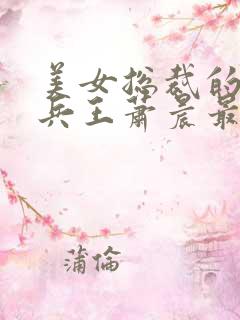 美女总裁的
兵王萧晨最
蒲伦